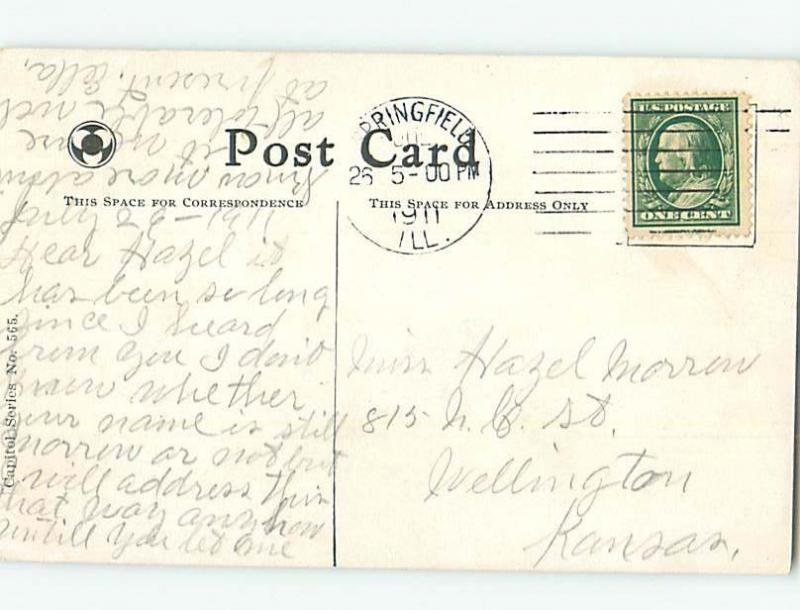 Post Card
THIS SPACE FOR CORRESPONDENCE
THIS SPACE FOR ADDRESS ONLY
SPRINGFIELD
26 5-00 PM
1911
ILL.
U.S. POSTAGE
ONE CENT
Capitol Series No. 565.
July 26-1911
Dear Hazel it
has been so long
since I heard
from you I don't
know whether
your name is still
morrow or not but
I will address this
that way anyhow
untill you let me
know more about
it we are
all tolerable well
at present. Ella.
Miss Hazel Morrow
815 N. B. St.
Wellington
Kansas.